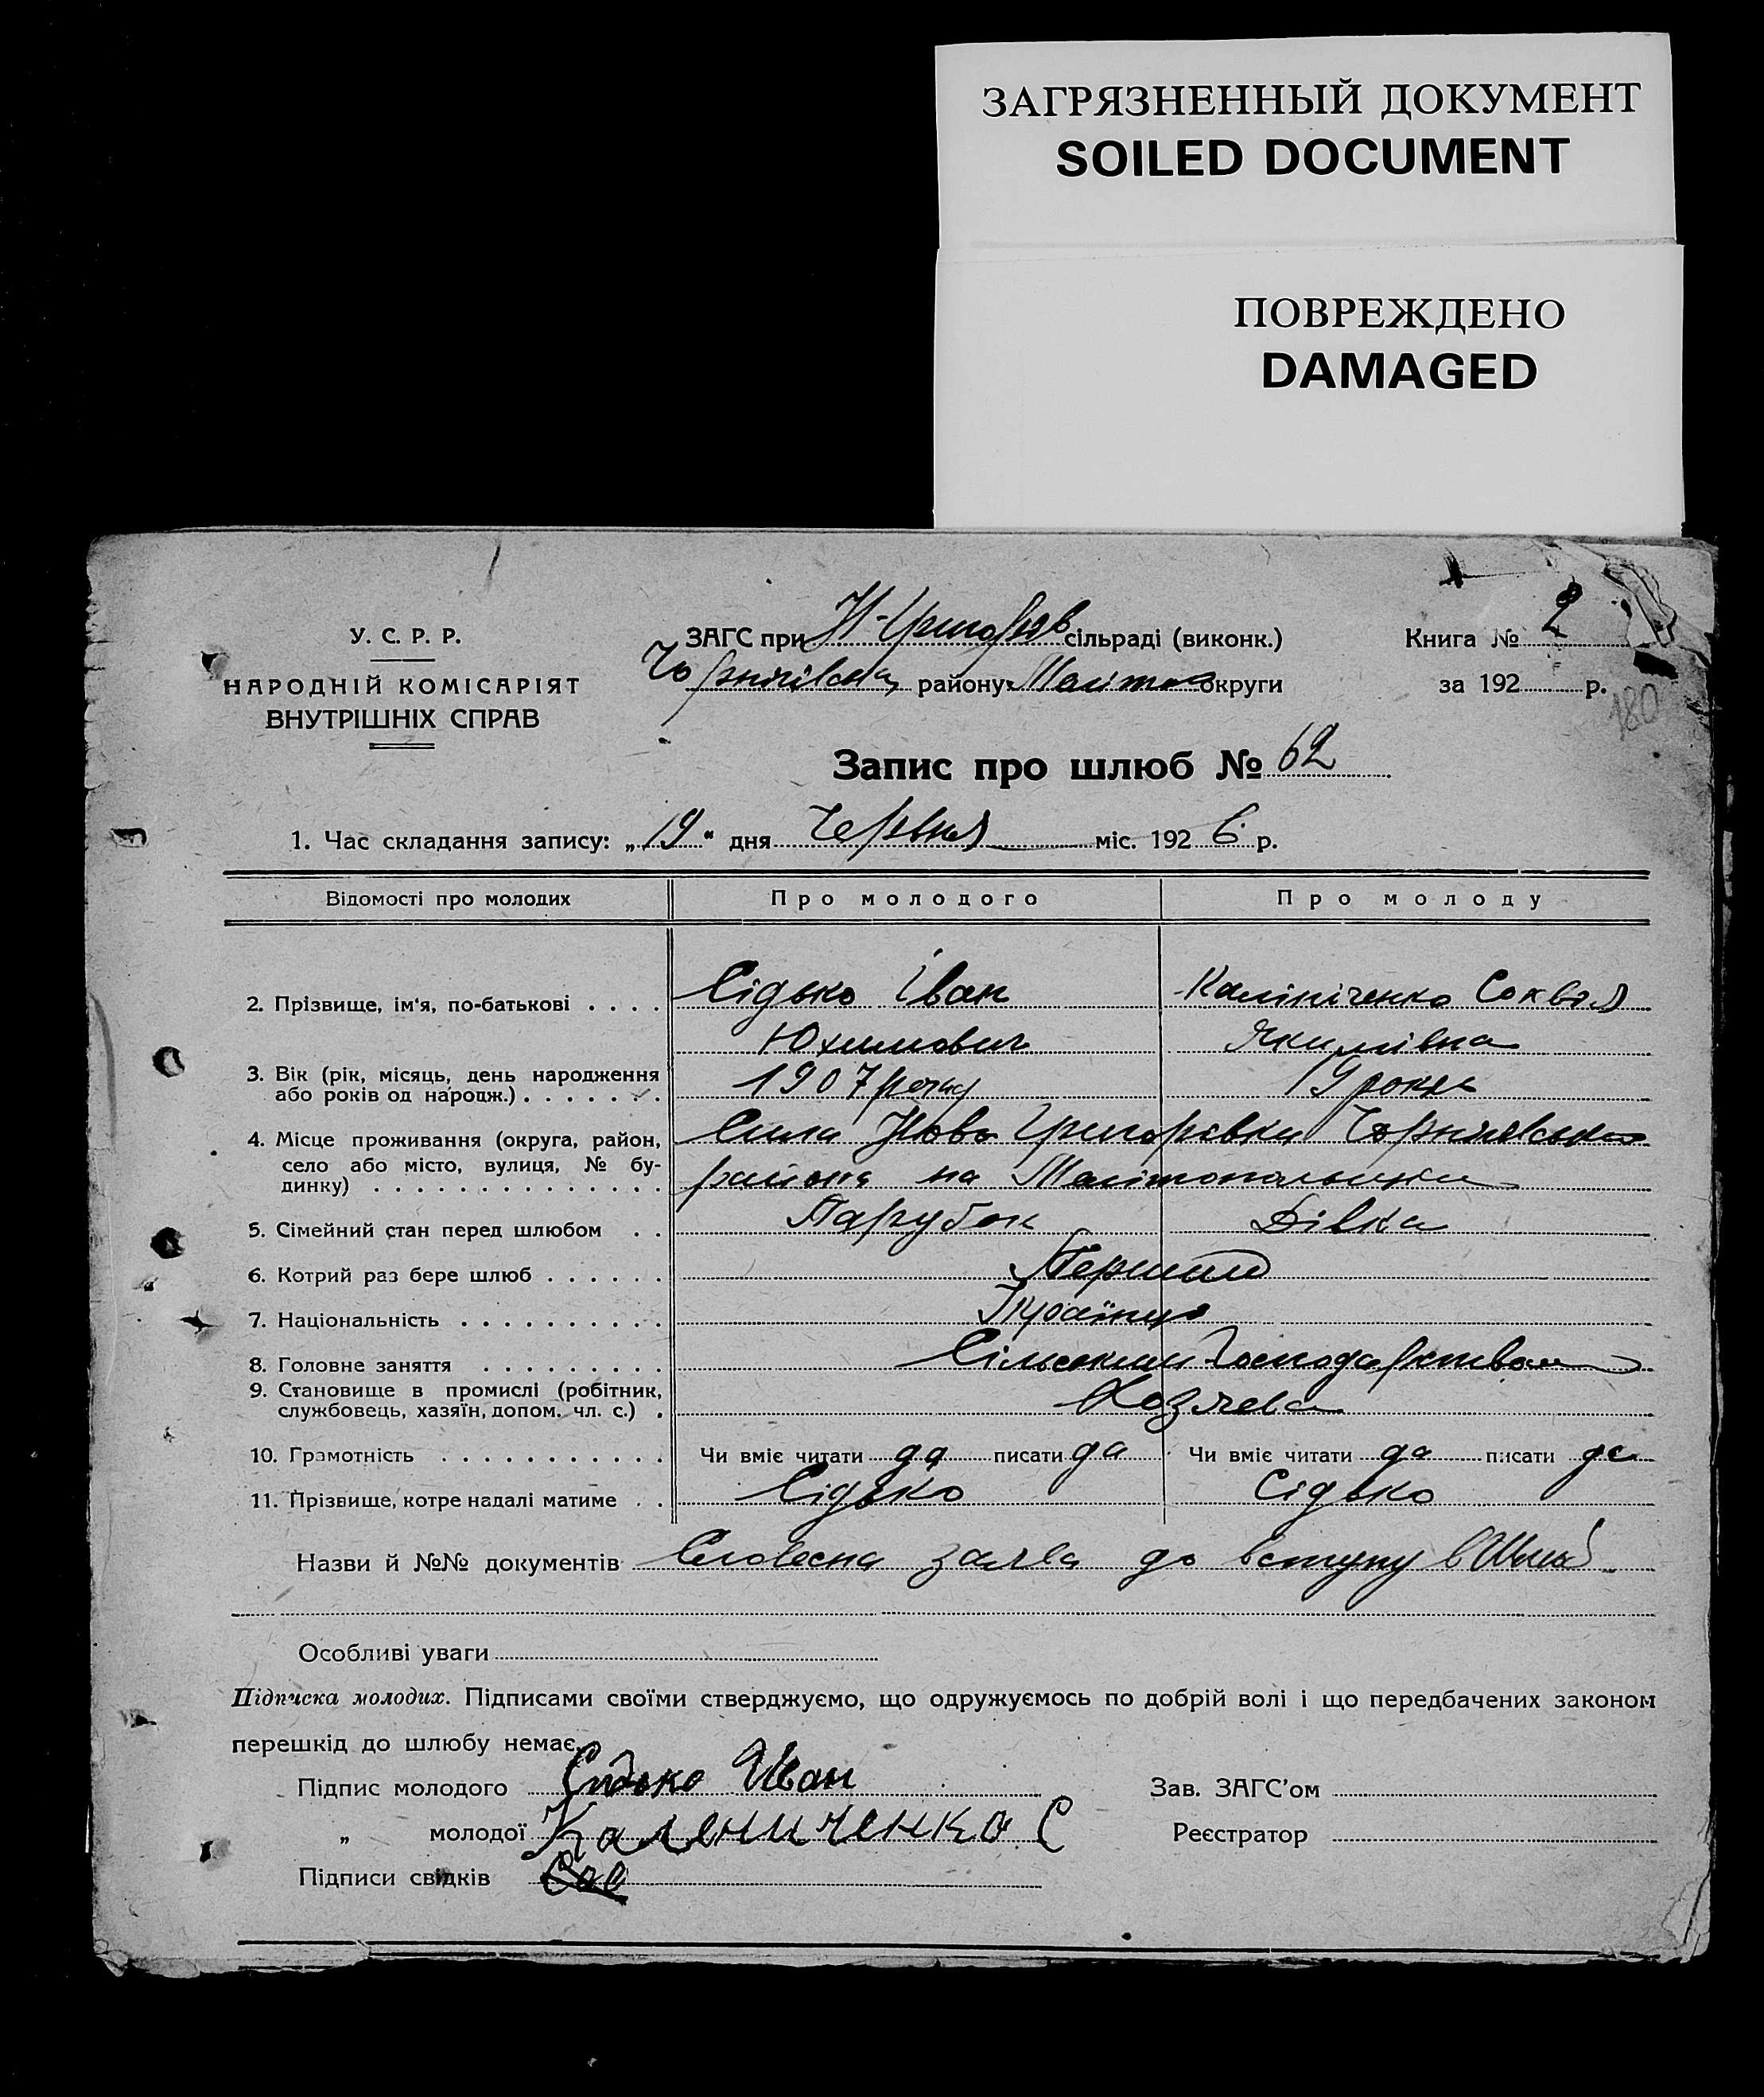 ЗАГРЯЗНЕННЫЙ ДОКУМЕНТ
SOILED DOCUMENT
ПОВРЕЖДЕНО
DAMAGED
У. С. Р. Р.
НАРОДНІЙ КОМІСАРІЯТ
ВНУТРІШНІХ СПРАВ
ЗАГС при Н-Григорів сільраді (виконк.)
району Меліт округи
Книга № 2
за 192 р.
180
Запис про шлюб № 62
1. Час складання запису: „19“ дня Червня міс. 1926 р.
Відомості про молодих Про молодого Про молоду
2. Прізвище, ім'я, по-батькові . . . . Сідько Іван Калініченко
Юхимович Якимівна
3. Вік (рік, місяць, день народження
або років од народж.) . . . . . . . 1907 року 19 років
4. Місце проживання (округа, район,
село або місто, вулиця, № бу-
динку) . . . . . . . . . . . . . .
Села Ново Григорівки
района на Мелітопольщини
5. Сімейний стан перед шлюбом . . Парубок Дівка
6. Котрий раз бере шлюб . . . . . . Перший
7. Національність . . . . . . . . . . Українці
8. Головне заняття . . . . . . . . . Сільским Господарством
9. Становище в промислі (робітник,
службовець, хазяїн, допом. чл. с.) .
10. Грамотність . . . . . . . . . . . Чи вміє читати да писати да Чи вміє читати да писати да
11. Прізвище, котре надалі матиме . . Сідько Сідько
Назви й №№ документів Словесна заява до вступу в Шлюб
Особливі уваги
Підписка молодих. Підписами своїми стверджуємо, що одружуємось по добрій волі і що передбачених законом
перешкід до шлюбу немає.
Підпис молодого Сидько Иван
Зав. ЗАГС'ом
„ молодої Калениченко С
Реєстратор
Підписи свідків